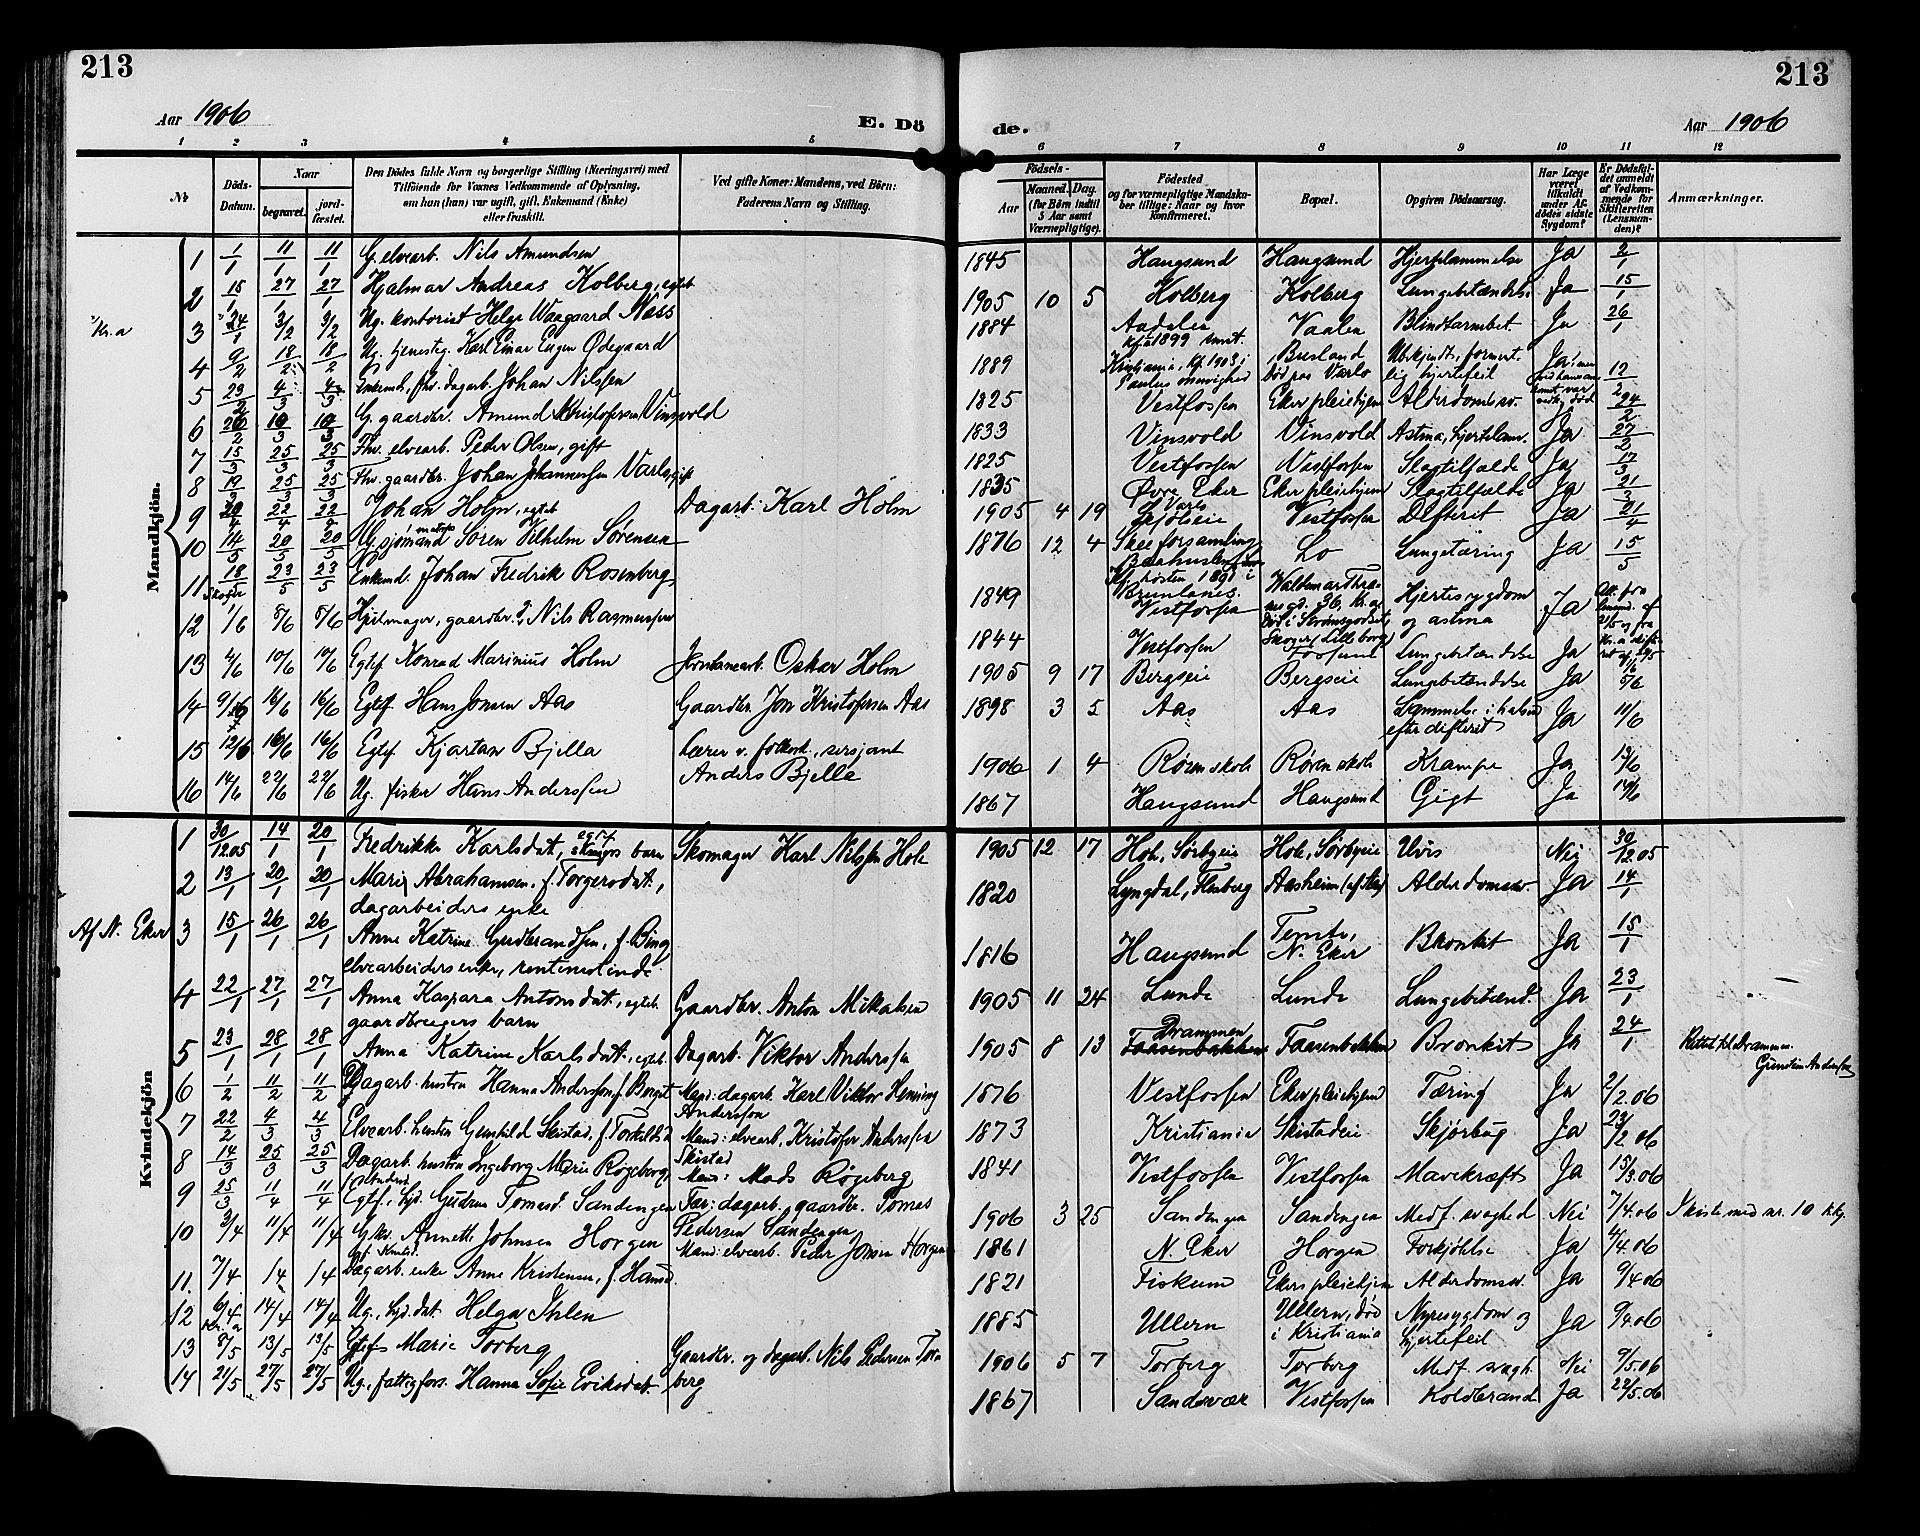 213
213
Aar 1906
E. Dö
de.
Aar 1906
1 2 3 4 5
6 7 8 9 10 11 12
№
Döds-Datum.
Naar
begravet.
jord-fæstet.
Den Dödes fulde Navn og borgerlige Stilling (Næringsvei) med
Tilföiende for Voxnes Vedkommende af Oplysning,
om han (hun) var ugift, gift, Enkemand (Enke)
eller fraskilt.
Ved gifte Koner: Mandens, ved Börn:
Faderens Navn og Stilling.
Födsels-
Aar
Maaned. Dag.
(for Börn indtil
5 Aar samt
Værnepligtige).
Födested
og for værnepligtige Mandska-
ber tillige: Naar og hvor
konfirmeret.
Bopæl.
Opgiven Dödsaarsag.
Har Læge
været
tilkaldt
under Af-
dödes sidste
Sygdom?
Er Dödsfal-
det anmeldt
af Vedkom-
mende for
Skifteretten
(Lensman-
den)?
Anmærkninger.
Mandkjön.
1 1/1 11/1 11/1 G. elvearb. Nils Amundsen 1845 Haugsund Haugsund Hjertelammelse Ja 2/1
2 15/1 27/1 27/1 Hjalmar Andreas Kolberg, egteb 1905 10 5 Kolberg Kolberg Lungebetændelse Ja 15/1
Kr.a 3 24/1 3/2 3/2 Ug. kontorist Helge Waagaard Næss 1884 Aadalen kf. 1899 smst. Vaalen Blindtarmbet. Ja 26/1
4 9/2 18/2 18/2 Ug. tjenesteg. Karl Einar Eugen Ødegaard 1889 Kristiania, kf. 1903 i Paulus menighed Busland død paa Varlo Ubekjendt, forment. lig hjertefeil Ja 12/2
5 23/2 4/3 4/3 Enkem., fhv. dagarb. Johan Nilssen 1825 Vestfossen Eker pleiehjem Alderdomssv. 24/2
6 26/2 10/3 10/3 G. gaardbr. Amund Kristofersen Vinsvold 1833 Vinsvold Vinsvold Astma, hjertelam. Ja 27/2
7 15/3 25/3 25/3 Fhv. elvearb. Peder Olsen, gift 1825 Vestfossen Vestfossen Slagtilfælde Ja 17/3
8 19/3 25/3 25/3 Fhv. gaardbr. Johan Johannessen Varlo, gift 1835 Øvre Eker Eker pleiehjem Slagtilfælde Ja 21/3
9 20/4 22/4 22/4 Johan Holm, egteb Dagarb. Karl Holm 1905 4 19 Varlo Vestfossen Difterit Ja 21/4
10 14/5 20/5 20/5 G. sjømand Søren Vilhelm Sørensen 1876 12 4 Skee forsamling Baahuslen Lo Lungetæring Ja 15/5
11 18/5 Skoger 23/5 23/5 Enkemd. Johan Fredrik Rosenberg 1849 Vestfossen Waldemar Thranes gd. 36, Kr.a Død i Strømsgodset, Skoger Hjertesygdom og astma Ja
12 1/6 8/6 8/6 Hjulmager, gaardbr. Nils Rasmussen 1844 Vestfossen Fossund Lungebetændelse Ja
13 4/6 10/6 10/6 Egtef. Konrad Marinius Holm Jernbanearb. Oskar Holm 1905 9 17 Bergseie Bergseie Lungebetændelse Ja 5/6
14 9/6 16/6 16/6 Egtef. Hans Jonsen Aas Gaardbr. Jon Kristofersen Aas 1898 3 5 Aas Aas Lammelse i halsen efter difterit Ja 11/6
15 12/6 16/6 16/6 Egtef. Kjartan Bjella Lærer v. folkesk., sersjant Anders Bjella 1906 1 4 Røren skole Røren skole Krampe Ja 13/6
16 14/6 22/6 22/6 Ug. fisker Hans Anderssen 1867 Haugsund Haugsund Gigt Ja 14/6
Kvindekjön
1 30/12.05 14/1 20/1 Fredrikke Karlsdat., skomagers barn Skomager Karl Nilssen Hole 1905 12 17 Hole, Sørbyeie Hole, Sørbyeie Uvis Nei 30/12.05
2 13/1 20/1 20/1 Marie Abrahamsen, f. Torgersdat., dagarbeiders enke 1820 Lyngdal, Flesberg Aasheim Alderdomssv. Ja 14/1
Af N. Eker 3 15/1 26/1 26/1 Anne Katrine Gudbrandsen, f. Bing elvearbeiders enke, rentenistinde 1816 Haugsund Temte, N. Eker Bronkit Ja 15/1
4 22/1 27/1 27/1 Anna Kaspara Antonsdat., egteb. gaardbrugers barn Gaardbr. Anton Mikalsen 1905 11 24 Lunde Lunde Lungebetænd. Ja 23/1
5 23/1 28/1 28/1 Anna Katrine Karlsdat., egteb. Dagarb. Viktor Anderssen 1905 8 13 Drammen Faasenbakken Faasenbakken Bronkit Ja 24/1 Rettet til Drammen.
6 1/2 11/2 11/2 Dagarb. hustru Hanna Anderssen, f. Bergst. Mand: dagarb. Karl Viktor Henning Anderssen 1876 Vestfossen Eker pleiehjem Tæring Ja 2/2.06
7 22/2 4/3 4/3 Elvearb. hustru Gunhild Skistad, f. Torkilsd. Mand: elvearb. Kristofer Anderssen Skistad 1873 Kristiania Skistadeie Skjørbug Ja 23/2 06
8 14/3 25/3 25/3 Dagarb. hustru Ingeborg Marie Røgeberg, Mand: Mads Røgeberg 1841 Vestfossen Vestfossen Mavekræft Ja 15/3.06
9 25/3 11/4 11/4 Egtf. hjd. Gudrun Tomasd. Sandengen Far: dagarb., gaardbr. Tomas Pedersen Sandengen 1906 3 25 Sandengen Sandengen Medf. svaghed Nei 7/4.06 I kiste med nr. 10
10 3/4 11/4 11/4 G.kv. Annette Johnsen Horgen Mand: elvearb. Peder Jonsen Horgen 1861 N. Eker Horgen Forkjølelse Ja 4/4.06
11. 7/4 1/4 1/4 Dagarb. enke Anne Kristensen, f. Hansd. 1821 Fiskum Ekers pleiehjem Alderdomssv. Ja 9/4 06
12 6/4 Kr.a 14/4 14/4 Ug., hjd. dat. Helga Ihlen 1885 Ullern Ullern, død i Kristiania Nyresygdom og hjertefeil Ja 9/4.06
13 8/5 13/5 13/5 Egtef. Marie Torberg Gaardbr. og dagarb. Nils Pedersen Torberg 1906 5 7 Torberg Torberg Medf. svagh. Nei 9/5.06
14 21/5 27/5 27/5 Ug. fattigfors. Hanna Sofie Eriksdat. 1867 Sandsvær Vestfossen Koldbrand Ja 22/5.06